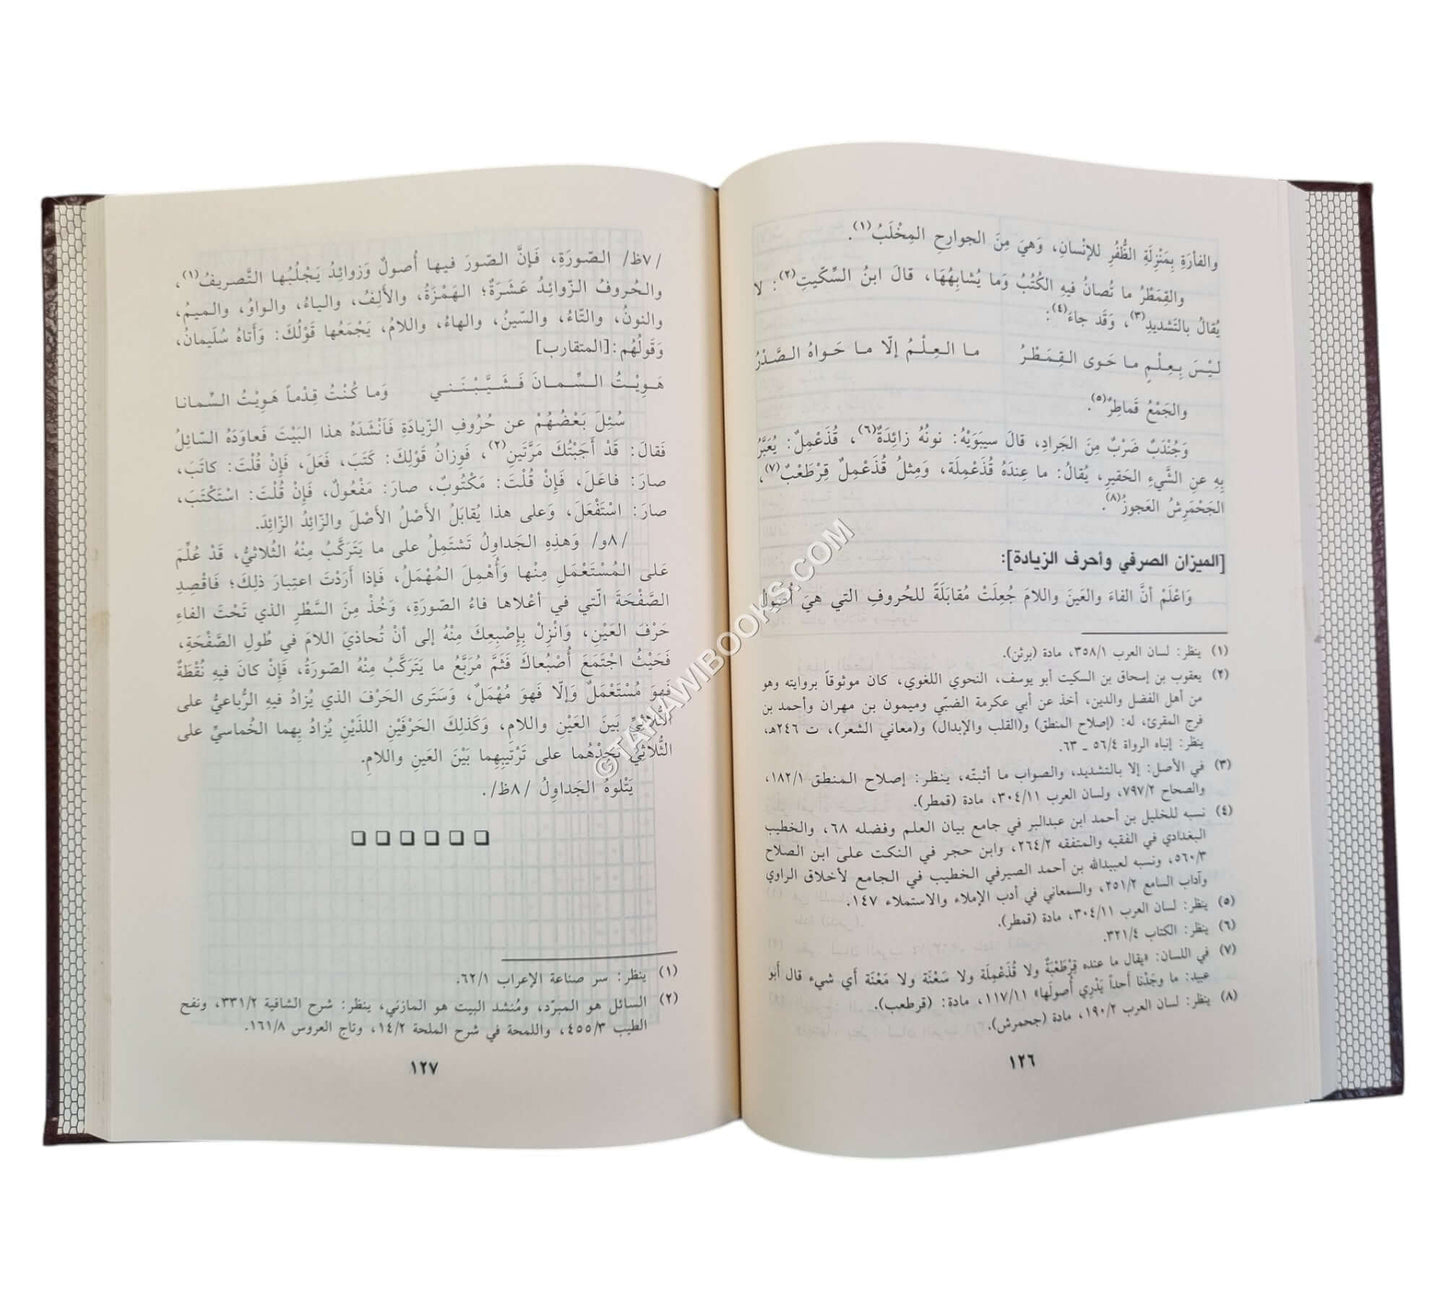 والفأرَةِ بِمَنْزِلَةِ الظُّفُرِ للإنْسانِ، وَهيَ مِنَ الجوارِحِ المِخْلَبُ(١).
والقِمَطْرُ ما تُصانُ فيهِ الكُتُبُ وَما يُشابِهُهَا، قالَ ابنُ السِّكّيتِ(٢): لا
يُقالُ بالتَشديدِ(٣)، وَقَد جاءَ(٤):
لَيْسَ بِعِلْمٍ ما حَوى القِـمَطْـرُ ما الـعِلْـمُ إلّا ما حَـواهُ الـصَّـدْرُ
والجَمْعُ قَماطِرُ(٥).
وَجُنْدَبٌ ضَرْبٌ مِنَ الجَرادِ، قالَ سيبَوَيْهُ: نونُهُ زائِدَةٌ(٦)، قُذَعْمِلٌ: يُعَبَّرُ
بِهِ عنِ الشَّيءِ الحَقيرِ، يُقالُ: ما عِندَهُ قُذَعْمِلَة، وَمِثلُ قُذَعْمِلٌ قِرْطَعْبٌ(٧)،
الجَحْمَرِشُ العَجوزُ(٨).
[الميزان الصرفي وأحرف الزيادة]:
وَاعْلَمْ أنَّ الفاءَ والعَينَ واللامَ جُعِلَتْ مُقابَلَةً للحُروفِ التي هيَ أُصولُ
(١) ينظر: لسان العرب ٣٥٨/١، مادة (برثن).
(٢) يعقوب بن إسحاق بن السكيت أبو يوسف، النحوي اللغوي، كان موثوقاً بروايته وهو
من أهل الفضل والدين، أخذ عن أبي عكرمة الضبّي وميمون بن مهران وأحمد بن
فرج المقرئ، له: (إصلاح المنطق) و(القلب والإبدال) و(معاني الشعر)، ت ٢٤٦هـ،
ينظر: إنباه الرواة ٥٦/٤ ـ ٦٣.
(٣) في الأصل: إلا بالتشديد، والصواب ما أثبتّه، ينظر: إصلاح المنطق ١٨٢/١،
والصحاح ٧٩٧/٢، ولسان العرب ٣٠٤/١١، مادة (قمطر).
(٤) نسبه للخليل بن أحمد ابن عبدالبر في جامع بيان العلم وفضله ٦٨، والخطيب
البغدادي في الفقيه والمتفقه ٢٦٤/٢، وابن حجر في النكت على ابن الصلاح
٥٦٠/٣، ونسبه لعبيدالله بن أحمد الصيرفي الخطيب في الجامع لأخلاق الراوي
وآداب السامع ٢٥١/٢، والسمعاني في أدب الإملاء والاستملاء ١٤٧.
(٥) ينظر: لسان العرب ٣٠٤/١١، مادة (قمطر).
(٦) ينظر: الكتاب ٣٢١/٤.
(٧) في اللسان: «يقال ما عنده قِرْطَعْبَةٌ ولا قُذَعْمِلَة ولا سَعْنَة ولا مَعْنَة أي شيء قال أبو
عبيد: ما وَجَدْنا أحداً يَدْري أُصولَها» ١١٧/١١، مادة: (قرطعب).
(٨) ينظر: لسان العرب ١٩٠/٢، مادة (جحمرش).
١٢٦
/٧ظ/ الصّورَةِ، فَإنَّ الصّورَ فيها أُصولٌ وَزوائِدُ يَجْلُبُها التَّصريفُ(١)،
والحُروفُ الزّوائِدُ عَشَرَةٌ؛ الهَمْزَةُ، والأَلِفُ، والياءُ، والواوُ، والميمُ،
والنونُ، والتّاءُ، والسّينُ، والهاءُ، واللامُ، يَجْمَعُها قَوْلُكَ: وَأتاهُ سُلَيمانُ،
وَقَولُهُم: [المتقارب]
هَـوِيْـتُ الـسِّـمـانَ فَـشَـيَّـبْـنَـنـي وَما كُنْتُ قِدْماً هَوِيْتُ السِّمانا
سُئِلَ بَعْضُهُمْ عن حُروفِ الزّيادَةِ فَأنْشَدَهُ هذا البَيْتَ فَعاوَدَهُ السّائِلُ
فَقالَ: قَدْ أجَبْتُكَ مَرَّتَينِ(٢)، فَوِزانُ قَوْلِكَ: كَتَبَ، فَعَلَ، فَإنْ قُلْتَ: كاتَبَ،
صارَ: فاعَلَ، فَإنْ قُلْتَ: مَكْتُوبٌ، صارَ: مَفْعُولٌ، فَإنْ قُلْتَ: اسْتَكْتَبَ،
صارَ: اسْتَفْعَلَ، وَعلى هذا يُقابَلُ الأصْلُ الأصْلَ والزّائِدُ الزّائِدَ.
/٨و/ وَهذِهِ الجَداوِلُ تَشتَمِلُ على ما يَتَرَكَّبُ مِنْهُ الثُلاثيُّ، قَدْ عُلِّمَ
على المُسْتَعْمَلِ مِنْها وَأُهْمِلَ المُهْمَلُ، فَإذا أرَدْتَ اعتِبارَ ذلِكَ؛ فَاقْصِدِ
الصَّفْحَةَ الّتي في أعْلاها فاءُ الصّورَةِ، وَخُذْ مِنَ السَّطْرِ الذي تَحْتَ الفاءِ
حَرْفَ العَيْنِ، وَانْزِلْ بِإصْبِعِكَ مِنْهُ إلى أنْ تُحاذيَ اللامَ في طُولِ الصَّفْحَةِ،
فَحَيْثُ اجتَمَعَ أُصْبُعاكَ فَثَمَّ مُرَبَّعُ ما يَتَرَكَّبُ مِنْهُ الصّورَةُ، فَإنْ كانَ فيهِ نُقْطَةٌ
فَهوَ مُسْتَعْمَلٌ وَإلّا فَهوَ مُهْمَلٌ، وَسَتَرى الحَرْفَ الذي يُزادُ فيهِ الرُّباعيُّ على
الثُّلاثيِّ بَينَ العَيْنِ واللامِ، وَكَذلِكَ الحَرْفَيْنِ اللذَيْنِ يُزادُ بِهِما الخُماسيُّ على
الثُّلاثيِّ تَجِدْهُما على تَرْتيبِهِما بَيْنَ العَينِ واللامِ.
يَتْلوهُ الجَداوِلُ /٨ظ/.
(١) ينظر: سر صناعة الإعراب ٦٢/١.
(٢) السائل هو المبرّد، ومُنشد البيت هو المازني، ينظر: شرح الشافية ٣٣١/٢، ونفح
الطيب ٤٥٥/٣، واللمحة في شرح الملحة ١٤/٢، وتاج العروس ١٦١/٨.
١٢٧
©TAHAWIBOOKS.COM